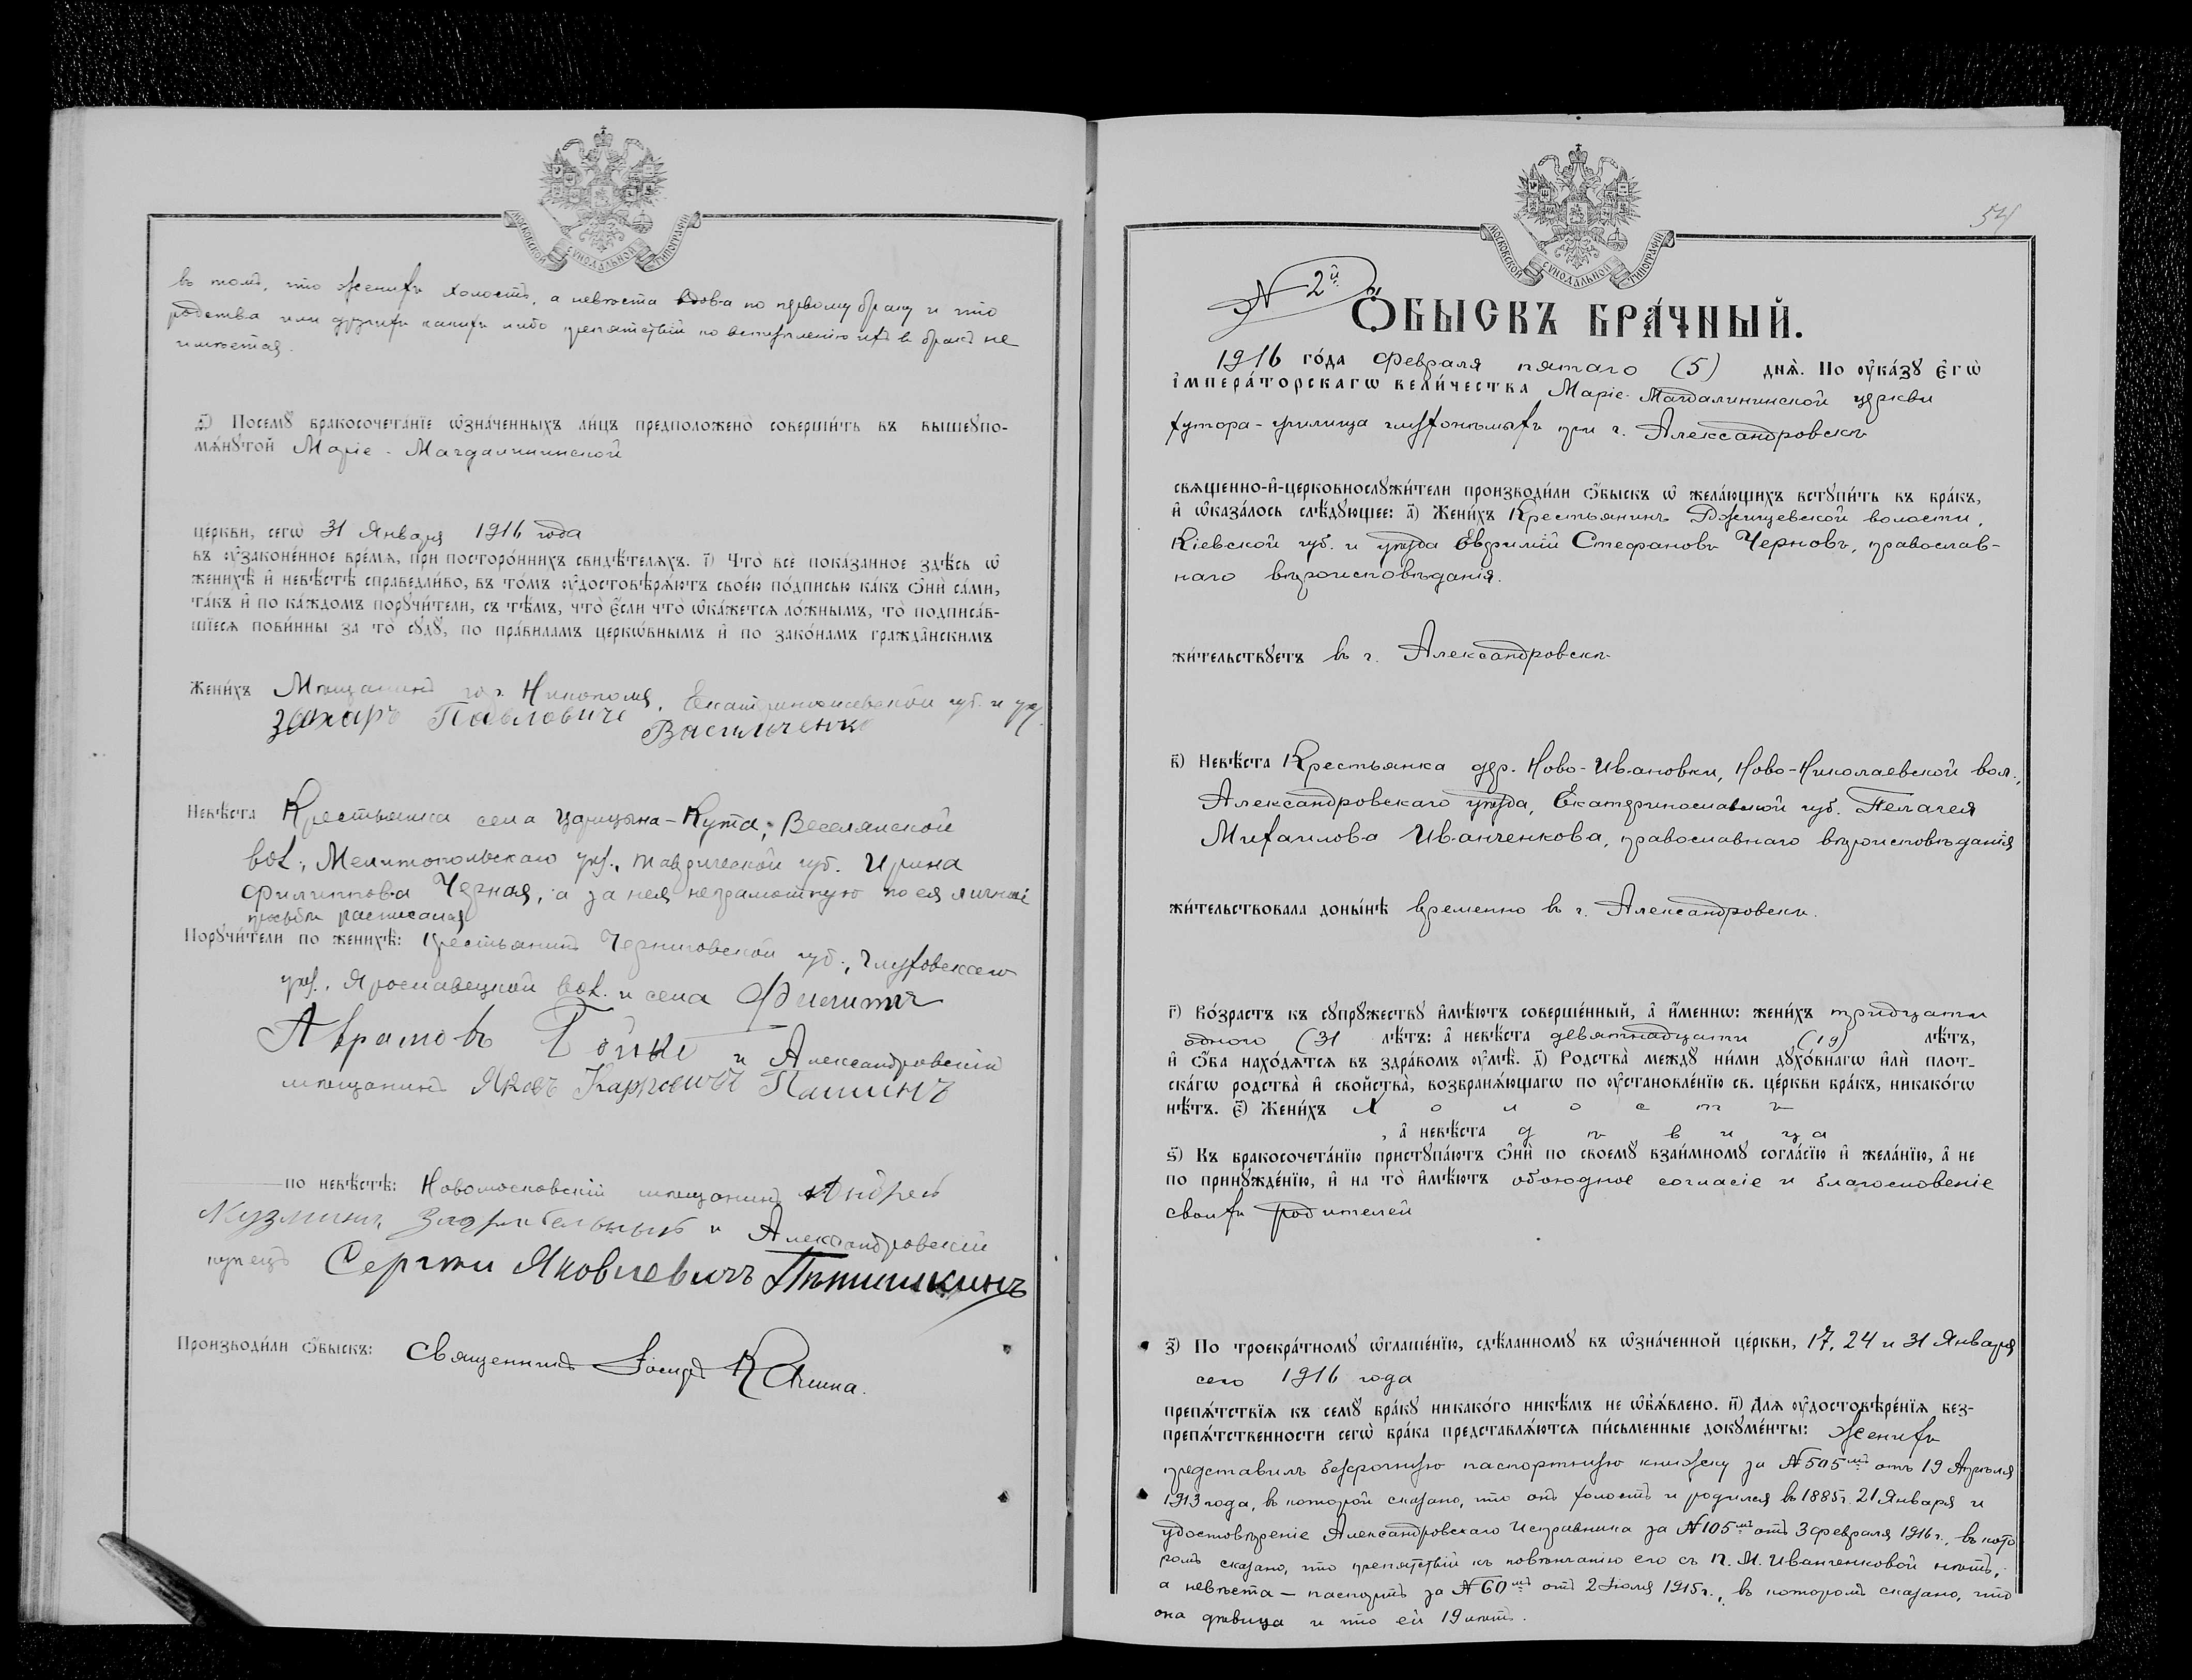 МОСКОВСКОЙ СѴНОДАЛЬНОЙ ТИПОГРАФІИ
въ томъ, что женихъ холостъ, а невѣста вдова по первому браку и что
родства или другихъ какихъ либо препятствій по вступленію ихъ въ бракъ не
имѣется.
Посемꙋ̀ бракосочета́нїе ѡ҆зна́ченныхъ ли́цъ предположено̀ соверши́ть въ вышеꙋпо-
мѧ́нꙋтой Маріе-Магдалининской
це́ркви, сегѡ̀ 31 Января 1916 года
въ ᲂу҆законе́нное вре́мѧ, при посторо́ннихъ свидѣ́телѧхъ. і҃) Что̀ всѐ пока́занное здѣ́сь ѡ҆
женихѣ̀ и҆ невѣ́стѣ справедли́во, въ то́мъ ᲂу҆достовѣрѧ́ютъ свое́ю по́дписью ка́къ ѻ҆нѝ са́ми,
та́къ и҆ по ка́ждомъ порꙋчи́тели, съ тѣ́мъ, что̀ є҆́сли что̀ ѡ҆ка́жетсѧ ло́жнымъ, то̀ подписа́в-
шїесѧ пови́нны за то̀ сꙋдꙋ̀, по пра́виламъ церко́внымъ и҆ по зако́намъ гражда́нскимъ
Жени́хъ Мѣщанинъ гор. Никополя, Екатеринославской губ. и уѣз.
Захаръ Павловичъ Васильченко
Невѣ́ста Крестьянка села Царицына-Кута, Веселянской
вол., Мелитопольскаго уѣз., Таврической губ. Ирина
Филиппова Черная, а за нея неграмотную по ея личной
просьбѣ расписался
Порꙋчи́тели по женихѣ̀: Крестьянинъ Черниговской губ., Глуховскаго
уѣз., Ярославецкой вол. и села Филиппъ
Аврамовъ Бойко и Александровскій
мѣщанинъ Яковъ Карповичъ Пашинъ
по невѣ́стѣ: Новомосковскій мѣщанинъ Андрей
Кузминъ и Александровскій
купецъ Сергѣй Яковлевичъ Пѣтишкинъ
Производи́ли ѻ҆́быскъ: Священникъ Іосифъ
МОСКОВСКОЙ СѴНОДАЛЬНОЙ ТИПОГРАФІИ
54
№ 2й
Ѻ҆́БЫСКЪ БРА́ЧНЫЙ.
1916 го́да Февраля пятаго (5) днѧ̀. По ᲂу҆ка́зꙋ Є҆гѡ̀
І҆мпера́торскагѡ вели́чества Маріе-Магдалининской церкви
хутора-училища глухонѣмыхъ при г. Александровскѣ
свѧще́нно-и҆-церковнослꙋжи́тели производи́ли ѻ҆́быскъ ѡ҆ жела́ющихъ встꙋпи́ть въ бра́къ,
и҆ ѡ҆каза́лось слѣ́дꙋющее: а҃) Жени́хъ Крестьянинъ Ржищевской волости,
Кіевской губ. и уѣзда Евфимій Стефановъ Черновъ, православ-
наго вѣроисповѣданія.
жи́тельствꙋетъ въ г. Александровскѣ
в҃) Невѣ́ста Крестьянка дер. Ново-Ивановки, Ново-Николаевской вол.,
Александровскаго уѣзда, Екатеринославской губ. Пелагея
Михаилова Иванченкова, православнаго вѣроисповѣданія
жи́тельствовала доны́нѣ временно въ г. Александровскѣ.
г҃) Во́зрастъ къ сꙋпрꙋ́жествꙋ и҆мѣ́ютъ соверше́нный, а҆ и҆́меннѡ: жени́хъ тридцати
одного (31 лѣ́тъ: а҆ невѣ́ста девятнадцати (19) лѣ́тъ,
и҆ ѻ҆́ба нахо́дѧтсѧ въ здра́вомъ ᲂу҆мѣ̀. д҃) Родства̀ междꙋ̀ ни́ми дꙋхо́внагѡ и҆лѝ плот-
ска́гѡ родства̀ и҆ сво́йства̀, возбранѧ́ющагѡ по ᲂу҆становле́нїю св. це́ркви бра́къ, никако́гѡ
нѣ́тъ. є҃) Жени́хъ Холостъ
, а҆ невѣ́ста дѣвица
ѕ҃) Къ бракосочета́нїю пристꙋпа́ютъ ѻ҆нѝ по своемꙋ̀ взаи́мномꙋ согла́сїю и҆ жела́нїю, а҆ не
по принꙋжде́нїю, и҆ на то̀ и҆мѣ́ютъ обоюдное согласіе и благословеніе
своихъ родителей
з҃) По троекра́тномꙋ ѡ҆глаше́нїю, сдѣ́ланномꙋ въ ѡ҆зна́ченной це́ркви, 17, 24 и 31 Января
сего 1916 года
препѧ́тствїѧ къ семꙋ̀ бра́кꙋ никако́го никѣ́мъ не ѡ҆б̾ѧ́влено. и҃) Длѧ ᲂу҆достовѣре́нїѧ без-
препѧ́тственности сегѡ̀ бра́ка представлѧ́ютсѧ пи́сьменные докꙋме́нты: Женихъ
представилъ безсрочную паспортную книжку за №505мъ отъ 19 Апрѣля
1913 года, въ которой сказано, что онъ холостъ и родился въ 1885 г. 21 Января и
удостовѣреніе Александровскаго Исправника за №105мъ отъ 3 февраля 1916 г., въ кото
ромъ сказано, что препятствій къ повѣнчанію его съ П. М. Иванченковой нѣтъ;
а невѣста — паспортъ за №60мъ отъ 2 Іюля 1915 г., въ которомъ сказано, что
она дѣвица и что ей 19 лѣтъ.